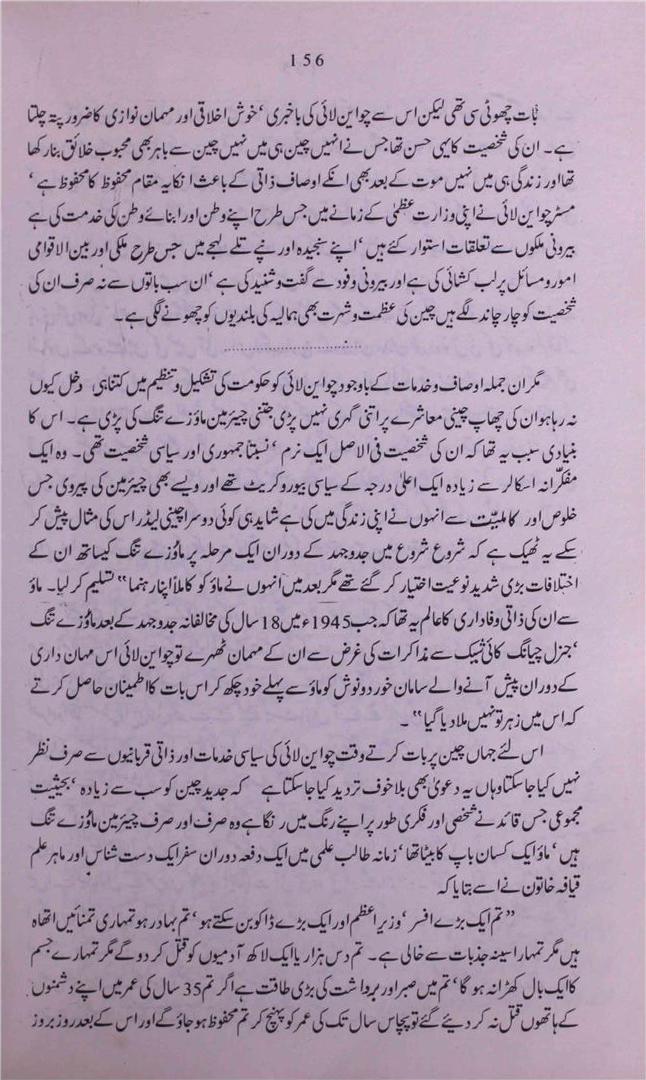 156
بات چھوٹی سی تھی لیکن اس سے چو این لائی کی باخبری ‘ خوش اخلاقی اور مہمان نوازی کا ضرور پتہ چلتا
ہے۔ ان کی شخصیت کا یہی حسن تھا جس نے انہیں چین ہی میں نہیں چین سے باہر بھی محبوب خلائق بنا رکھا
تھا اور زندگی ہی میں نہیں موت کے بعد بھی انکے اوصاف ذاتی کے باعث انکا یہ مقام محفوظ کا محفوظ ہے ‘
مسٹر چو این لائی نے اپنی وزارت عظمیٰ کے زمانے میں جس طرح اپنے وطن اور ابنائے وطن کی خدمت کی ہے
بیرونی ملکوں سے تعلقات استوار کئے ہیں ‘ اپنے سنجیدہ اور نپے تلے لہجے میں جس طرح ملکی اور بین الاقوامی
امور و مسائل پر لب کشائی کی ہے اور بیرونی وفود سے گفت و شنید کی ہے ‘ ان سب باتوں سے نہ صرف ان کی
شخصیت کو چار چاند لگے ہیں چین کی عظمت و شہرت بھی ہمالیہ کی بلندیوں کو چھونے لگی ہے۔
مگر ان جملہ اوصاف و خدمات کے باوجود چو این لائی کو حکومت کی تشکیل و تنظیم میں کتنا ہی دخل کیوں
نہ رہا ہو ان کی چھاپ چینی معاشرے پر اتنی گہری نہیں پڑی جتنی چیئرمین ماؤزے تنگ کی پڑی ہے۔ اس کا
بنیادی سبب یہ تھا کہ ان کی شخصیت فی الاصل ایک نرم ‘ نسبتا جمہوری اور سیاسی شخصیت تھی۔ وہ ایک
مفکرانہ اسکالر سے زیادہ ایک اعلیٰ درجہ کے سیاسی بیورو کریٹ تھے اور ویسے بھی چیئرمین کی پیروی جس
خلوص اور کاملیت سے انہوں نے اپنی زندگی میں کی ہے شاید ہی کوئی دوسرا چینی لیڈر اس کی مثال پیش کر
سکے یہ ٹھیک ہے کہ شروع شروع میں جدوجہد کے دوران ایک مرحلہ پر ماؤزے تنگ کیساتھ ان کے
اختلافات بڑی شدید نوعیت اختیار کر گئے تھے مگر بعد میں انہوں نے ماؤ کو کاملاً اپنا رہنما“ تسلیم کر لیا۔ ماؤ
سے ان کی ذاتی وفاداری کا عالم یہ تھا کہ جب 1945ء میں 18 سال کی مخالفانہ جدوجہد کے بعد ماؤزے تنگ
‘ جنرل چیانگ کائی شیک سے مذاکرات کی غرض سے ان کے مہمان ٹھہرے تو چو این لائی اس مہمان داری
کے دوران پیش آنے والے سامان خورد و نوش کو ماؤ سے پہلے خود چکھ کر اس بات کا اطمینان حاصل کرتے
کہ اس میں زہر تو نہیں ملا دیا گیا“۔
اس لئے جہاں چین پر بات کرتے وقت چو این لائی کی سیاسی خدمات اور ذاتی قربانیوں سے صرف نظر
نہیں کیا جا سکتا وہاں یہ دعویٰ بھی بلا خوف تردید کیا جا سکتا ہے کہ جدید چین کو سب سے زیادہ ‘ بحیثیت
مجموعی جس قائد نے شخصی اور فکری طور پر اپنے رنگ میں رنگا ہے وہ صرف اور صرف چیئرمین ماؤزے تنگ
ہیں ‘ ماؤ ایک کسان باپ کا بیٹا تھا ‘ زمانہ طالب علمی میں ایک دفعہ دوران سفر ایک دست شناس اور ماہر علم
قیافہ خاتون نے اسے بتایا کہ
”تم ایک بڑے افسر ‘ وزیر اعظم اور ایک بڑے ڈاکو بن سکتے ہو ‘ تم بہادر ہو تمہاری تمنائیں اتھاہ
ہیں مگر تمہارا سینہ جذبات سے خالی ہے۔ تم دس ہزار یا ایک لاکھ آدمیوں کو قتل کر دو گے مگر تمہارے جسم
کا ایک بال کھڑا نہ ہو گا ‘ تم میں صبر اور برداشت کی بڑی طاقت ہے اگر تم 35 سال کی عمر میں اپنے دشمنوں
کے ہاتھوں قتل نہ کر دیئے گئے تو پچاس سال تک کی عمر کو پہنچ کر تم محفوظ ہو جاؤ گے اور اس کے بعد روز بروز